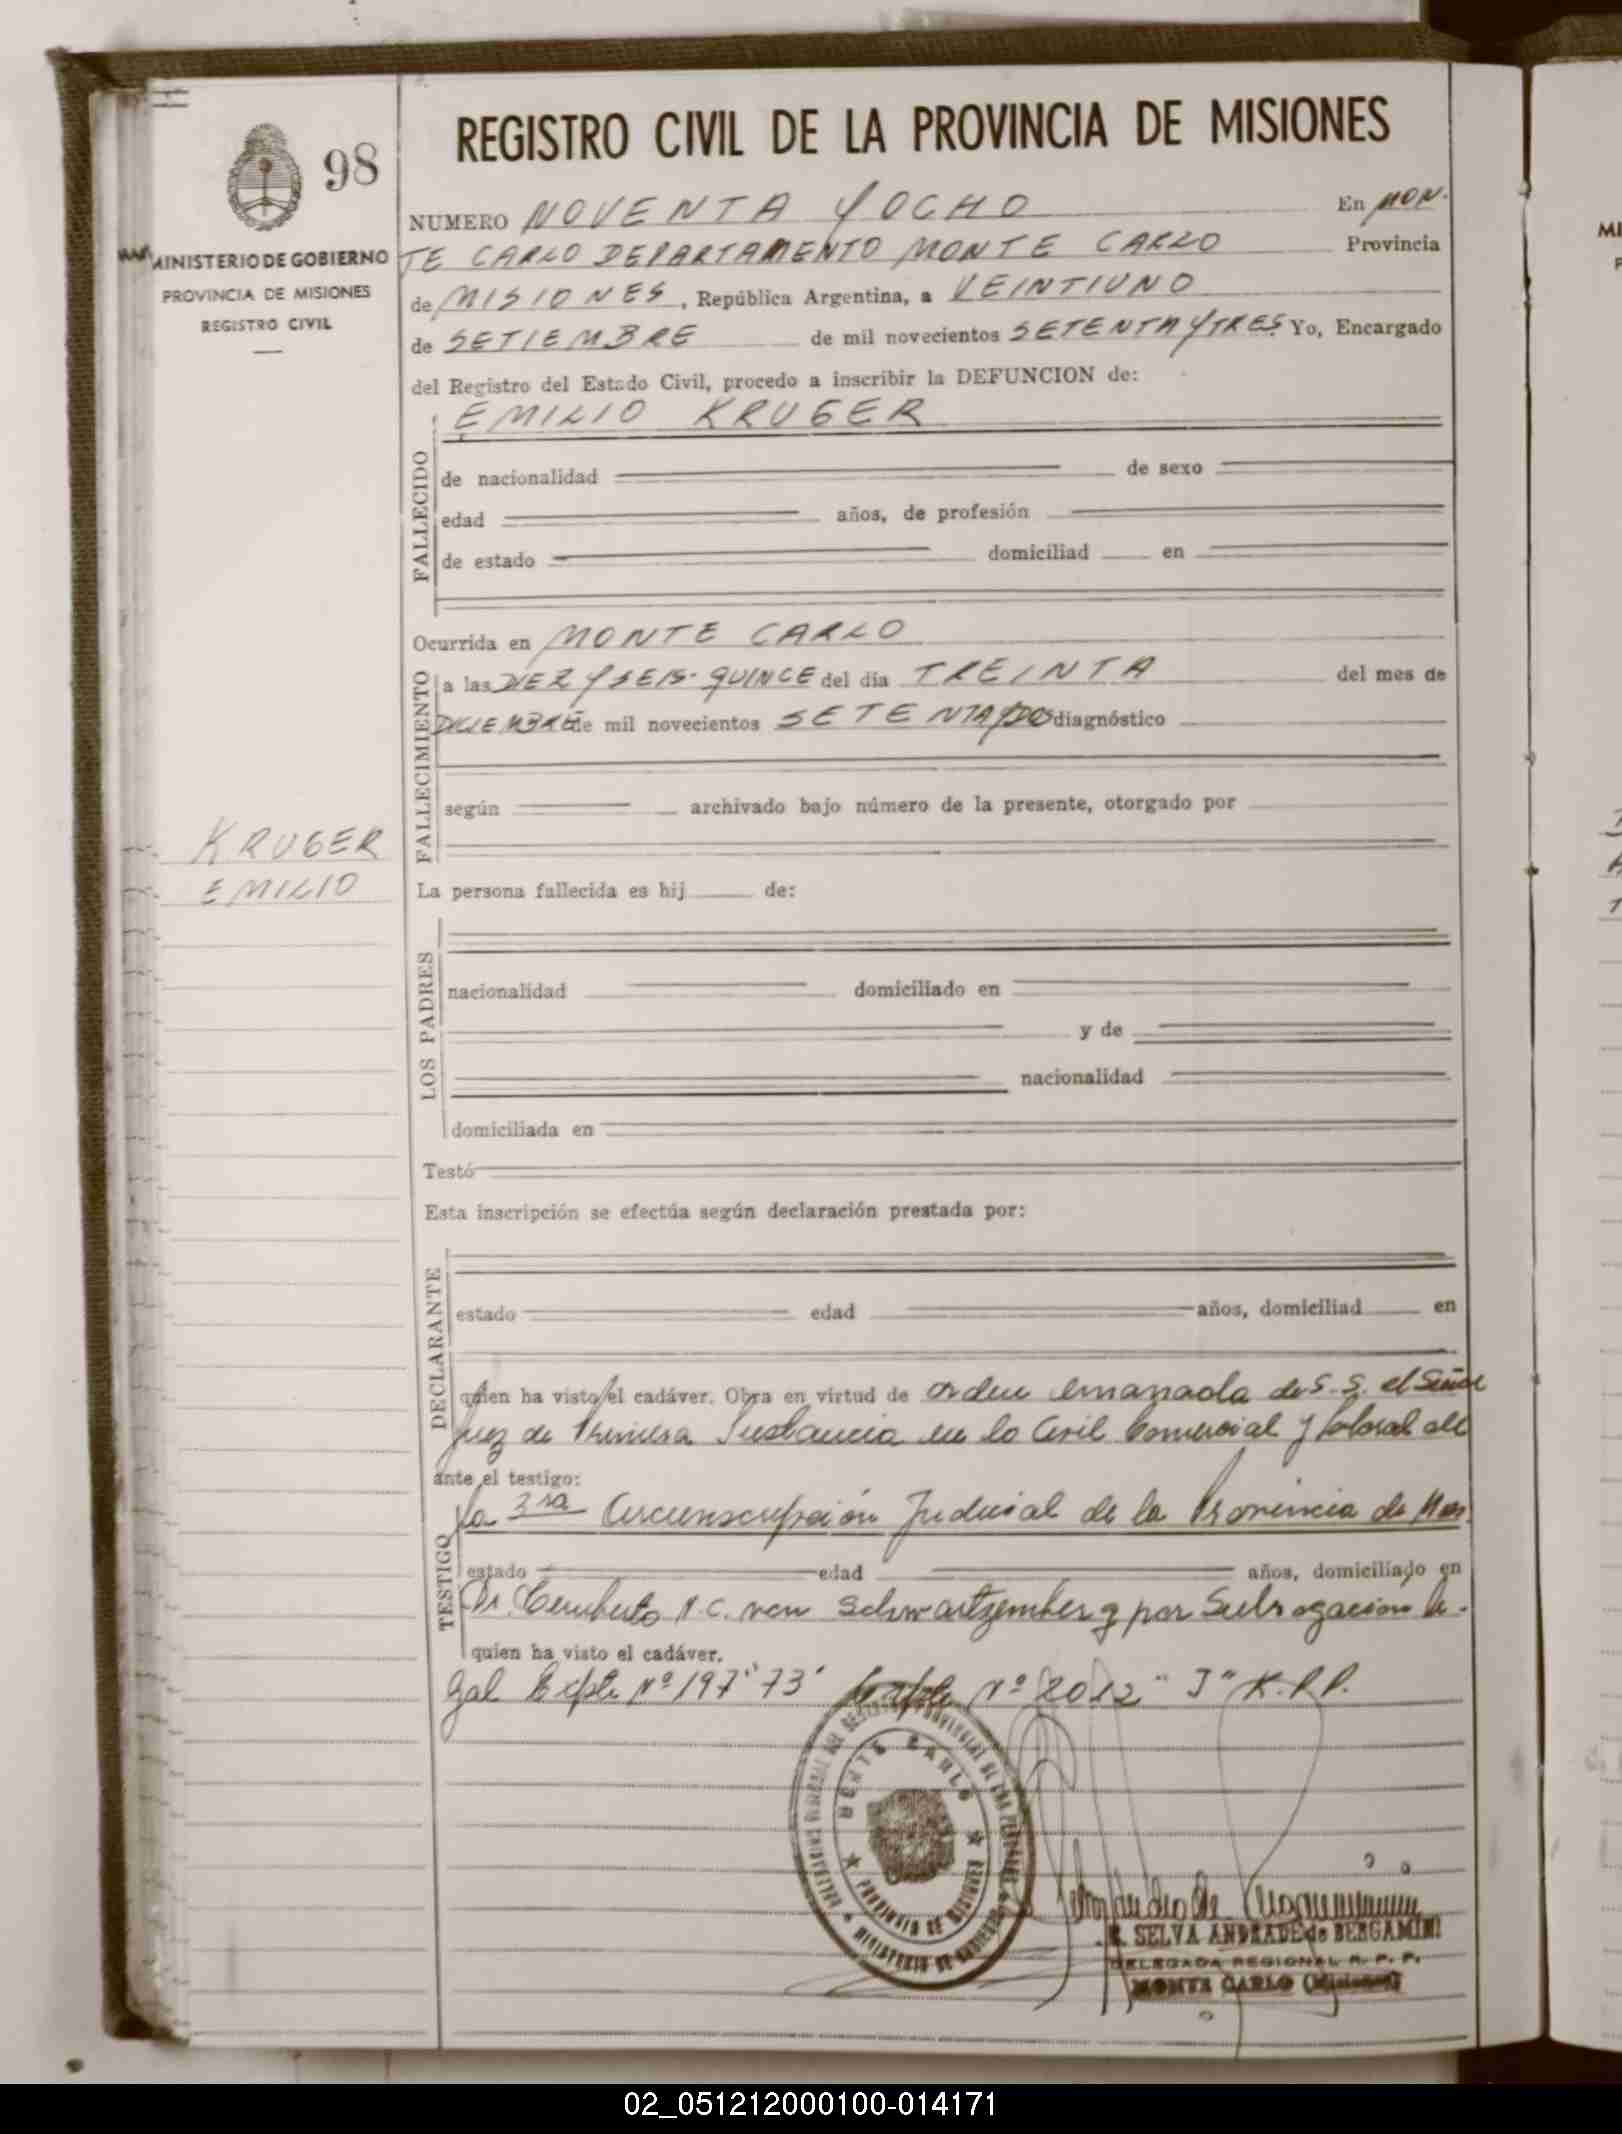 REGISTRO CIVIL DE LA PROVINCIA DE MISIONES
98
MINISTERIO DE GOBIERNO
PROVINCIA DE MISIONES
REGISTRO CIVIL
NUMERO NOVENTA Y OCHO En MON-
TE CARLO DEPARTAMENTO MONTE CARLO Provincia
de MISIONES, República Argentina, a VEINTIUNO
de SETIEMBRE de mil novecientos SETENTA Y TRES Yo, Encargado
del Registro del Estado Civil, procedo a inscribir la DEFUNCION de:
FALLECIDO
EMILIO KRUGER
de nacionalidad de sexo
edad años, de profesión
de estado domiciliad en
Ocurrida en MONTE CARLO
FALLECIMIENTO
a las DIEZ Y SEIS-QUINCE del día TREINTA del mes de
DICIEMBRE de mil novecientos SETENTA Y DOS diagnóstico
según archivado bajo número de la presente, otorgado por
KRUGER
EMILIO
La persona fallecida es hij de:
LOS PADRES
nacionalidad domiciliado en
y de
nacionalidad
domiciliada en
Testó
Esta inscripción se efectúa según declaración prestada por:
DECLARANTE
estado edad años, domiciliad en
quien ha visto el cadáver. Obra en virtud de orden emanada de S. S. el Señor
Juez de Primera Instancia en lo Civil Comercial y Laboral de
ante el testigo:
la 3ra Circunscripción Judicial de la Provincia de Mnes.
TESTIGO
estado edad años, domiciliado en
Dr. N. C. von Schwartzemberg por Subrogacion le-
quien ha visto el cadáver.
gal Expte Nº 197 "73" Nº 2012 "J" K.P.P.
MONTE CARLO
PROVINCIA DE MISIONES
MINISTERIO DE GOBIERNO
SELVA ANDRADE de BERGAMINI
DELEGADA REGIONAL R. P. P.
MONTE CARLO (Misiones)
02_051212000100-014171